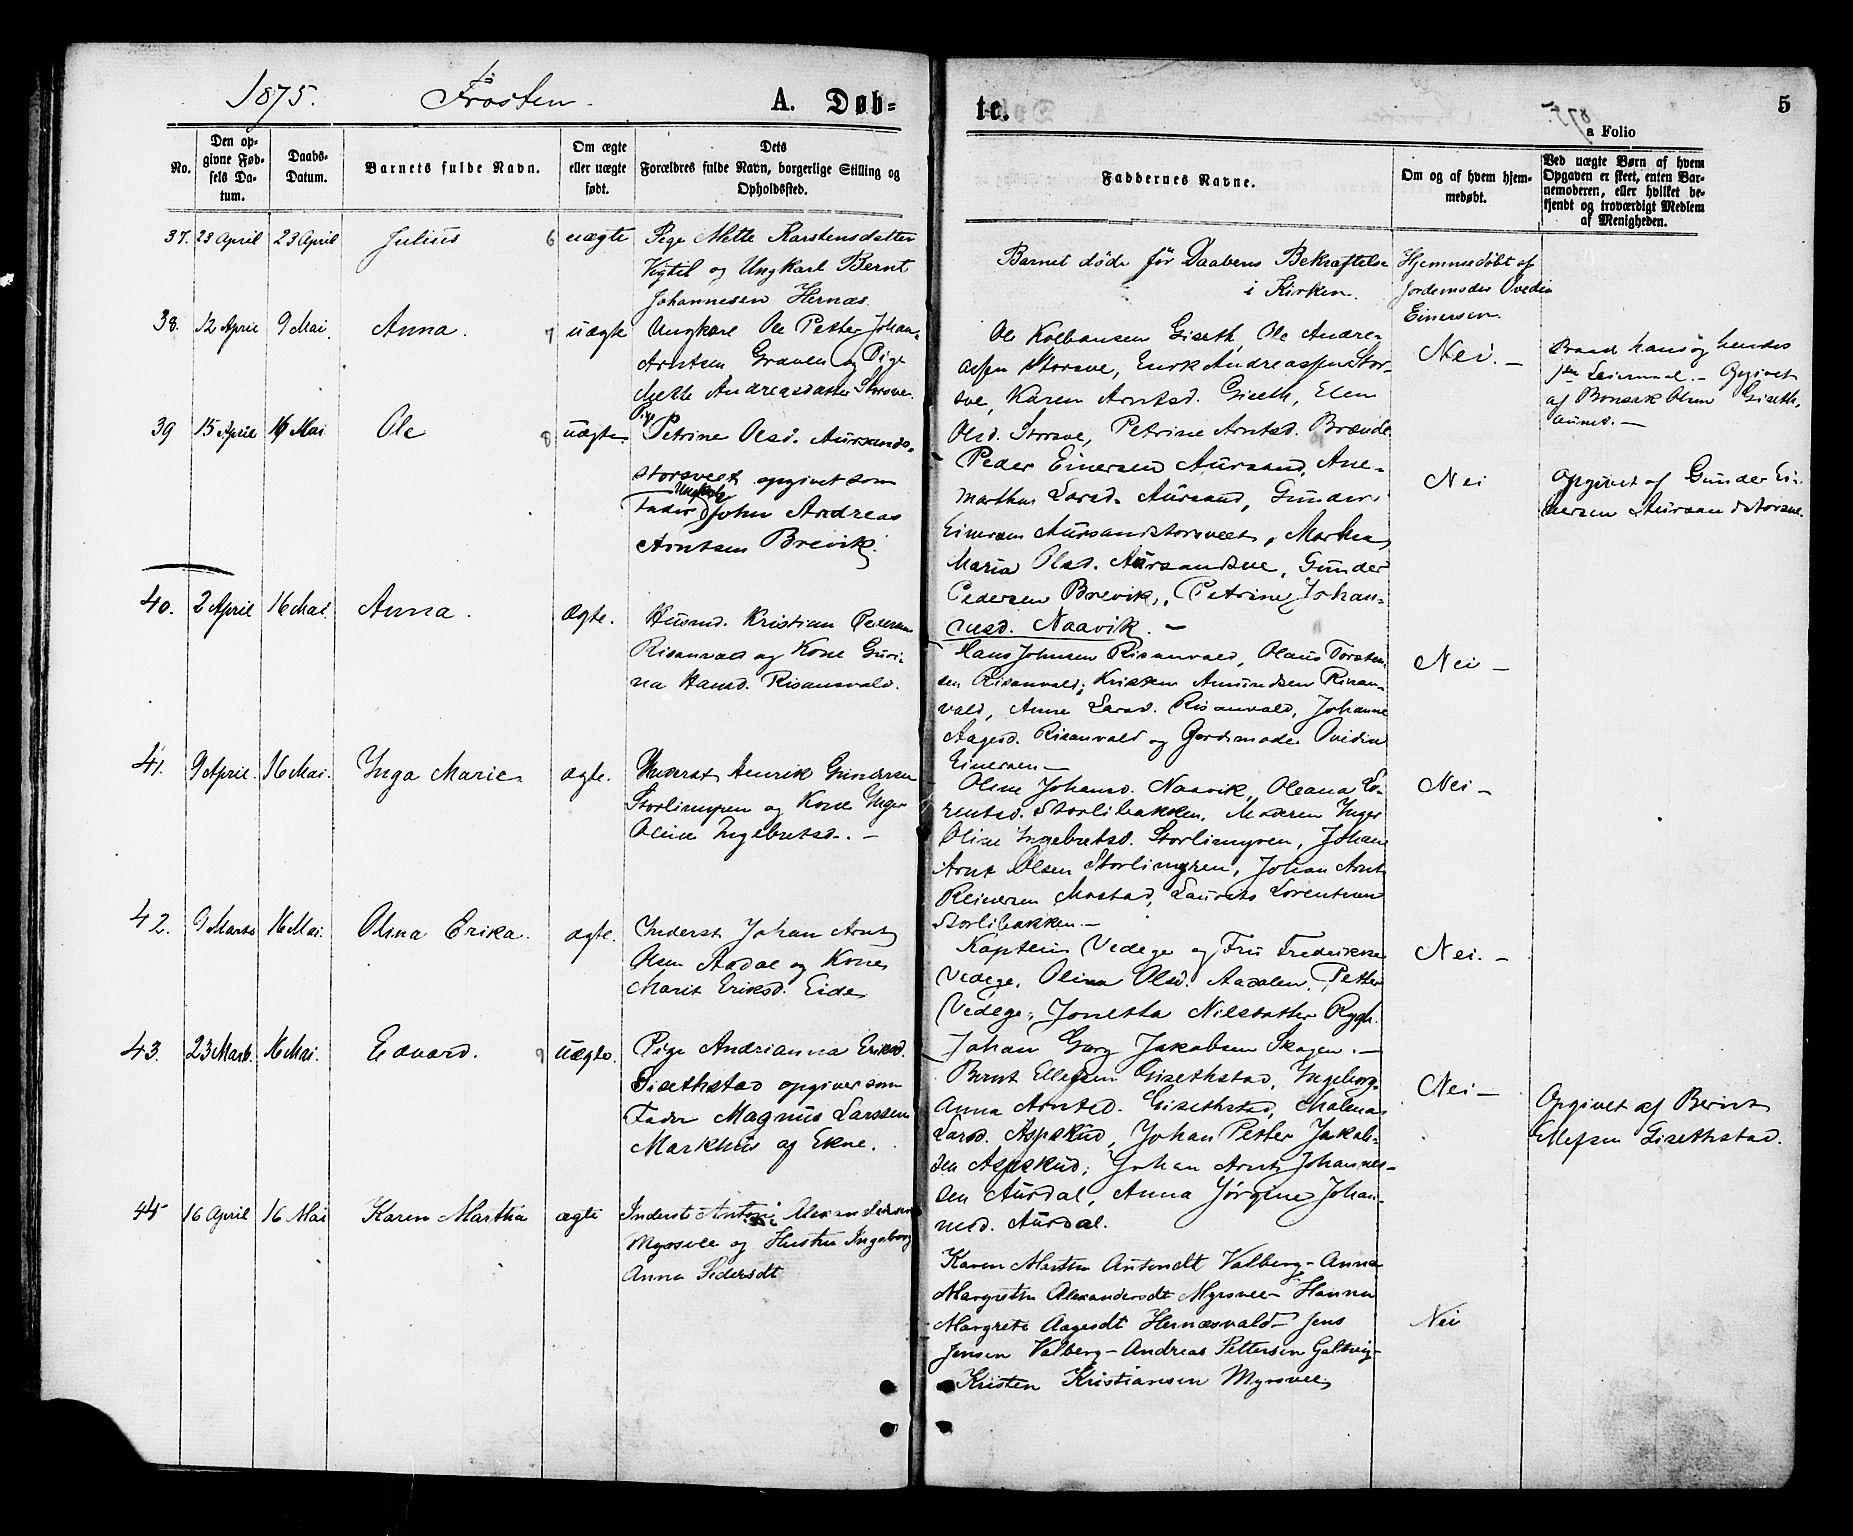 1875. Frosten. A. Døb-
te. 5
a Folio
No.
Den op-
givne Fød-
sels Da-
tum.
Daabs-
Datum.
Barnets fulde Navn.
Om ægte
eller uægte
født.
Dets
Forældres fulde Navn, borgerlige Stilling og
Opholdssted.
Faddernes Navne.
Om og af hvem hjem-
medøbt.
Ved uægte Børn af hvem
Opgaven er skeet, enten Bar-
nemoderen, eller hvilket be-
kjendt og troværdigt Medlem
af Menigheden.
37. 23 April 23 April Julius 6 uægte
Pige Mette Karstensdatter
Vigtil og Ungkarl Bernt
Johannesen Hernæs.
Barnet døde før Daabens Bekræftelse
i Kirken.
Hjemmedøbt af
Jordemoder Ovedia
Einersen
38. 12 April 9 Mai. Anna. 7 uægte
Ungkarl Ole Petter Johan
Arntsen Graven og Pige
Mette Andreasdatter Storsve.
Ole Kolbansen Giseth, Ole Andre-
assen Storsve, Andreassen Stor-
sve, Karen Arntsd. Giseth, Elen
Olsd. Storsve, Petrine Arntsd. Brænde
Nei. -
hans og hendes
Leiermaal. - Opgivet
af Olsen Giseth-
aunet. -
39 15 April 16 Mai Ole 8 uægte.
Pige
Petrine Olsd. Aursands-
storsveet opgivet som
Ungkarl
Fader John Andreas
Arntsen Brevik.
Peder Einersen Aursand, Ane-
martha Larsd. Aursand, Gunder
Einersen Aursandstorsveet, Martha
Maria Olsd. Aursandsve, Gunder
Pedersen Brevik, Petrine Johan-
nesd. Naavik. -
Nei
Opgivet af Gunder Ei-
nersen Aursandstorsve.
40. 2 April 16 Mai. Anna. Ægte.
Husmd. Kristian Pedersen
Risanvald og Kone Guri-
na Hansd. Risansvald.
Hans Johnsen Risanvald, Olaus Torsten-
sen Risanvald, Kristen Amundsen Risan-
vald, Anne Larsd. Risanvald, Johanne
Aagesd. Risanvald og Jordemoder Ovidia
Einersen -
Nei -
41. 9 April. 16 Mai. Inga Marie. ægte.
Inderst Henrik Gundersen
Storlimyren og Kone Inger
Oline Ingebretsd. -
Oline Johansd. Naavik, Oleana Lo-
rentsd. Storlibakken, Moderen Inger
Oline Ingebretsd. Storlimyren, Johan
Arnt Olsen Storlimyren, Johan Arnt
Reinersen Mostad, Laurits Lorentsen
Storlibakken -
Nei -
42. 9 Marts 16 Mai. Olina Erika. ægte.
Inderst Johan Arnt
Olsen Aadal og Kone
Marit Eriksd. Eide
Kaptein Vedege og Fru Frederikke
Vedege, Olina Olsd. Aadalen, Petter
Vedege, Jonetta Nilsdatter Rygh.
Johan Georg Jakobsen Skogen. -
Nei. -
43. 23 Marts. 16 Mai. Edvard. 9 uægte.
Pige Andrianna Eriksd.
Gisethstad opgiver som
Fader Magnus Larssen
Markhus af Ekne.
Bernt Ellefsen Gisethstad, Ingeborg-
Anna Arntsd. Gisethstad, Malena
Larsd. Aspskud, Johan Petter Jakob-
sen Aspskud, Johan Arnt Johannes-
sen Aurdal, Anna Jørgine Johan-
nesd. Aurdal.
Nei -
Opgivet af Bernt
Ellefsen Gisethstad.
44 16 April 16 Mai Karen Martha ægte
Inderst Antoni Alexandersen
Myrsvee og Hustru Ingeborg
Anna Pedersdt
Karen Martha Antondt Valberg - Anna
Margretha Alexandersdt Myrsvee - Hanna
Margreta Aagesdt Hernæsvald - Jens
Jensen Valberg - Andreas Pettersen Galtvig -
Kristen Kristiansen Myrsvee
Nei